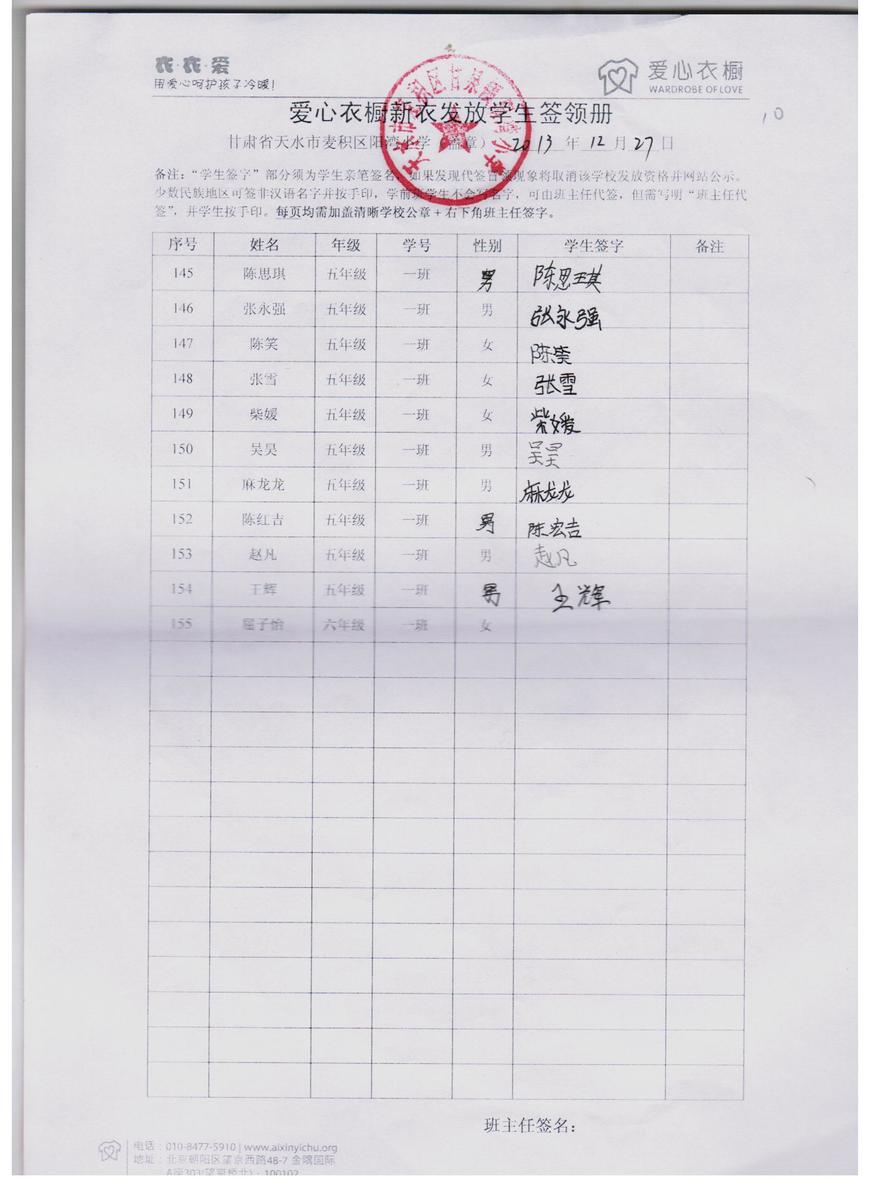 衣·衣·爱
用爱心呵护孩子冷暖!
爱心衣橱
WARDROBE OF LOVE
10
爱心衣橱新衣发放学生签领册
甘肃省天水市麦积区阳湾小学(盖章) 2013 年 12 月 27 日
备注:“学生签字”部分须为学生亲笔签名,如果发现代签冒领现象将取消该学校发放资格并网站公示。
少数民族地区可签非汉语名字并按手印,学前班学生不会写名字,可由班主任代签,但需写明“班主任代
签”,并学生按手印。每页均需加盖清晰学校公章+右下角班主任签字。
序号 姓名 年级 学号 性别 学生签字 备注
145 陈思琪 五年级 一班 男 陈思琪
146 张永强 五年级 一班 男 张永强
147 陈笑 五年级 一班 女 陈
148 张雪 五年级 一班 女 张雪
149 柴媛 五年级 一班 女 柴媛
150 吴昊 五年级 一班 男 吴昊
151 麻龙龙 五年级 一班 男 麻龙龙
152 陈红吉 五年级 一班 男 陈宏吉
153 赵凡 五年级 一班 男 赵凡
154 王辉 五年级 一班 男 王辉
155 屈子怡 六年级 一班 女
班主任签名:
电话:010-8477-5910 | www.aixinyichu.org
地址:北京朝阳区望京西路48-7 金隅国际
A座303(望京桥北)· 100102